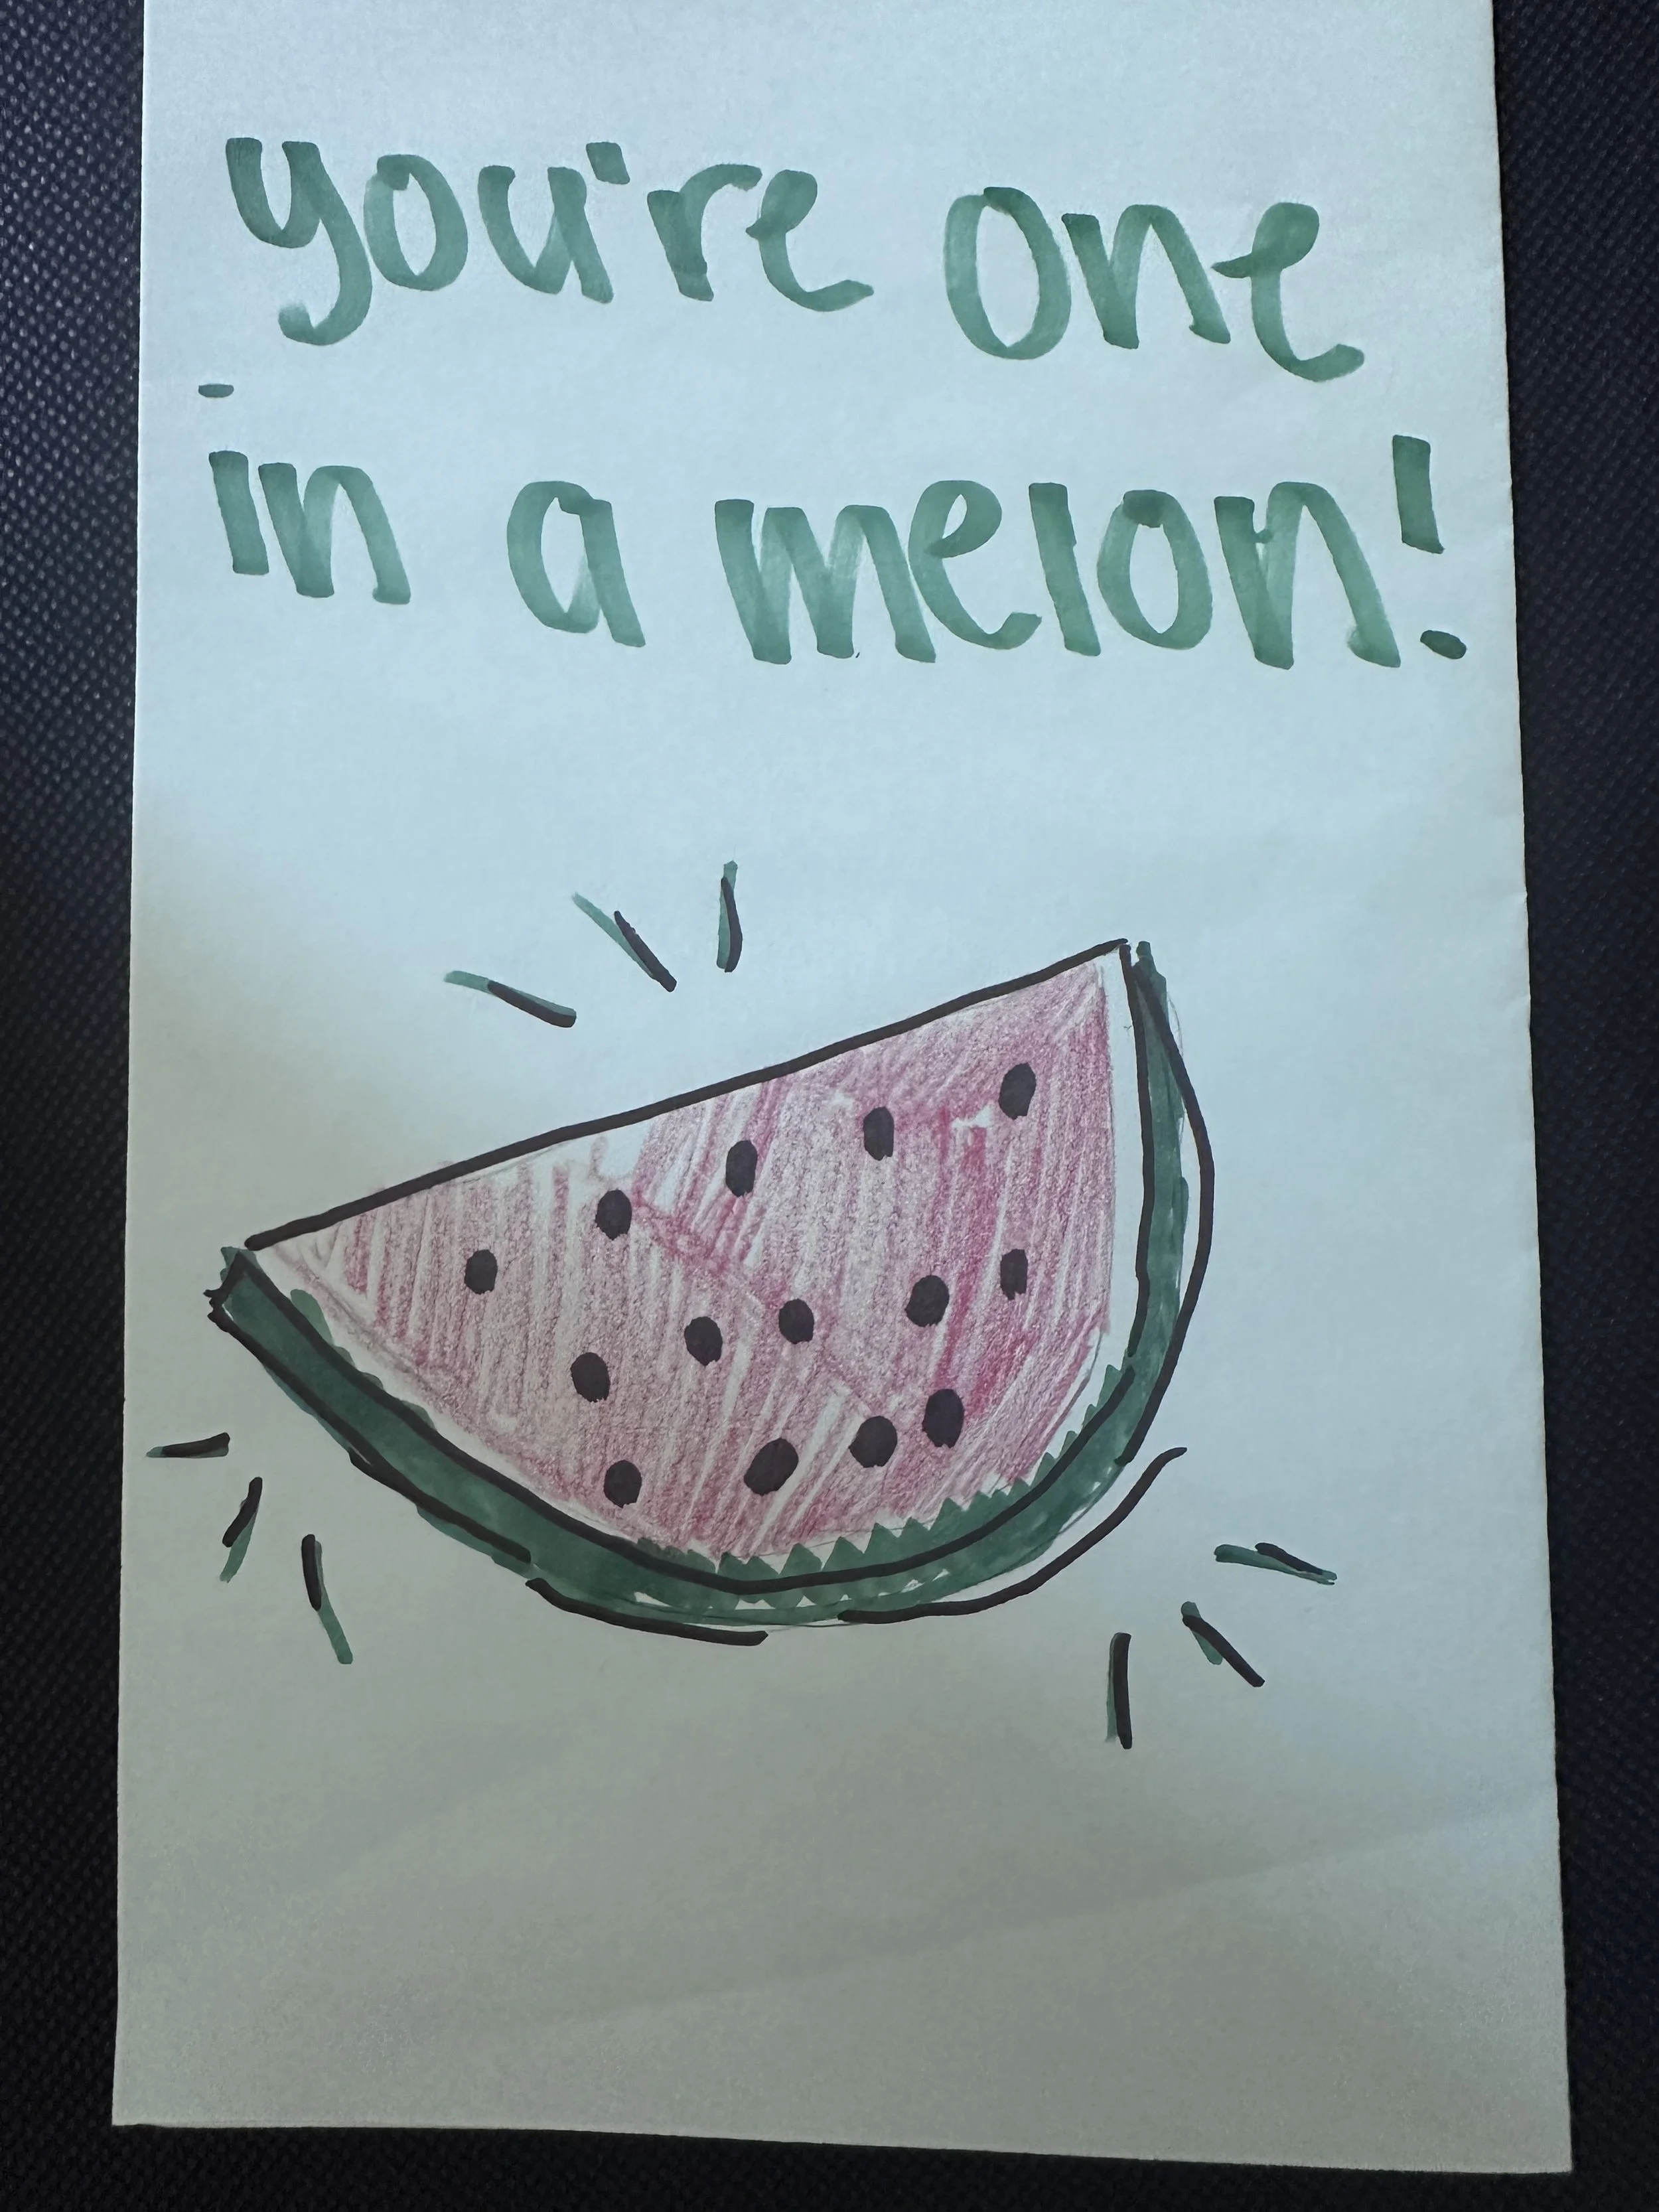 you're one
in a melon!